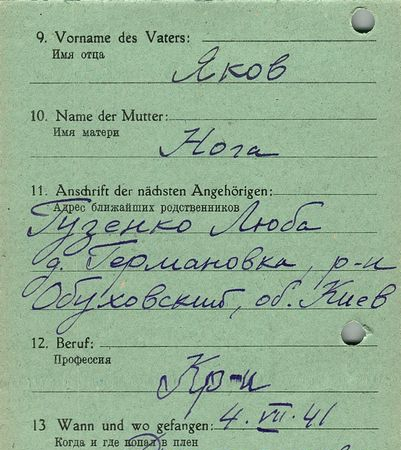 9. Vorname des Vaters:
Имя отца
Яков
10. Name der Mutter:
Имя матери
Нога
11. Anschrift der nächsten Angehörigen:
Адрес ближайших родственников
Гузенко Люба
д. Германовка, р-н
Обуховский, об. Киев
12. Beruf:
Профессия
Кр-н
13 Wann und wo gefangen: 4. VII. 41
Когда и где попал в плен